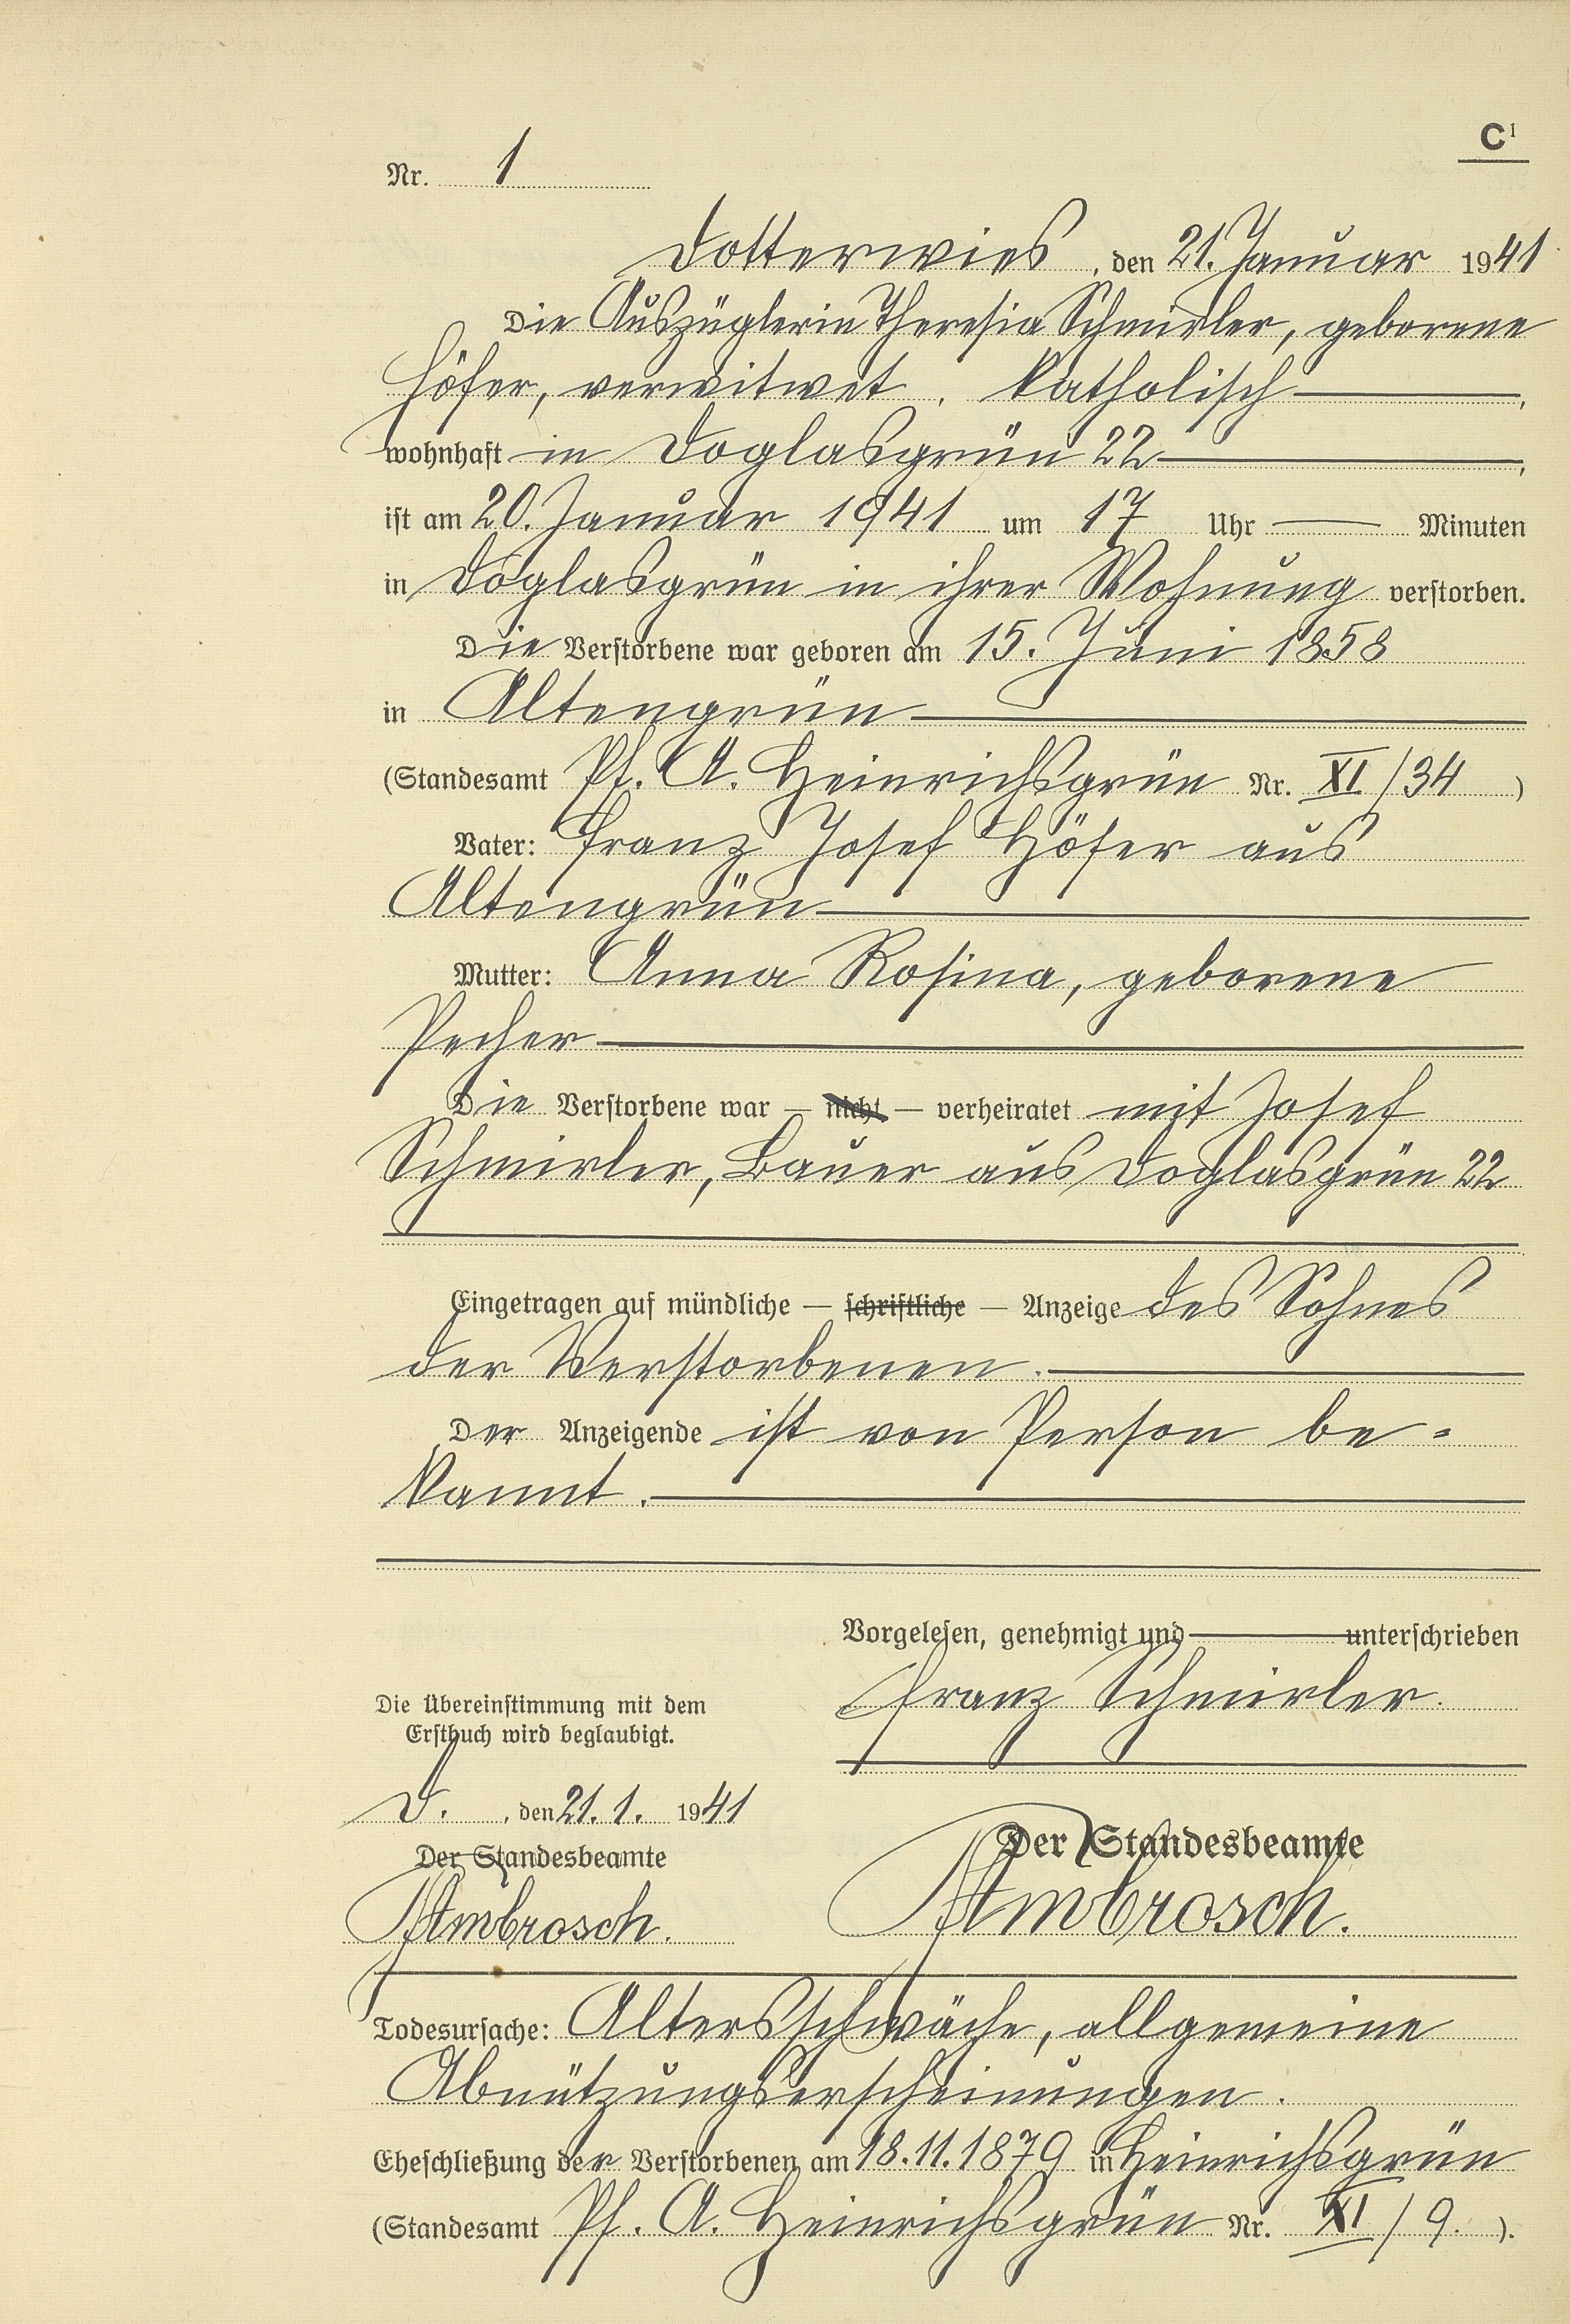 C1
Nr. 1
Dotterwies, den 21. Januar 1941
Die Auszüglerin Theresia Schmirler, geborene
Höfer, verwitwet, katholisch
wohnhaft in Doglasgrün 22
ist am 20. Januar 1941 um 17 Uhr — Minuten
in Doglasgrün in ihrer Wohnung verstorben.
Die Verstorbene war geboren am 15. Juni 1858
in Altengrün
(Standesamt Pf. A. Heinrichsgrün Nr. XI/34 )
Vater: Franz Josef Höfer aus
Altengrün
Mutter: Anna Rosina, geborene
Pecher
Die Verstorbene war — nicht — verheiratet mit Josef
Schmirler, Bauer aus Doglasgrün 22
Eingetragen auf mündliche — schriftliche — Anzeige des Sohnes
der Verstorbenen.
Der Anzeigende ist von Person be-
kannt.
Vorgelesen, genehmigt und unterschrieben
Franz Schmirler.
Die Übereinstimmung mit dem
Erstbuch wird beglaubigt.
D. , den 21. 1. 1941
Der Standesbeamte
Ambrosch.
Der Standesbeamte
Ambrosch.
Todesursache: Altersschwäche, allgemeine
Abnützungserscheinungen.
Eheschließung der Verstorbenen am 18.11.1879 in Heinrichsgrün
(Standesamt Pf. A. Heinrichsgrün Nr. XI/9. ).